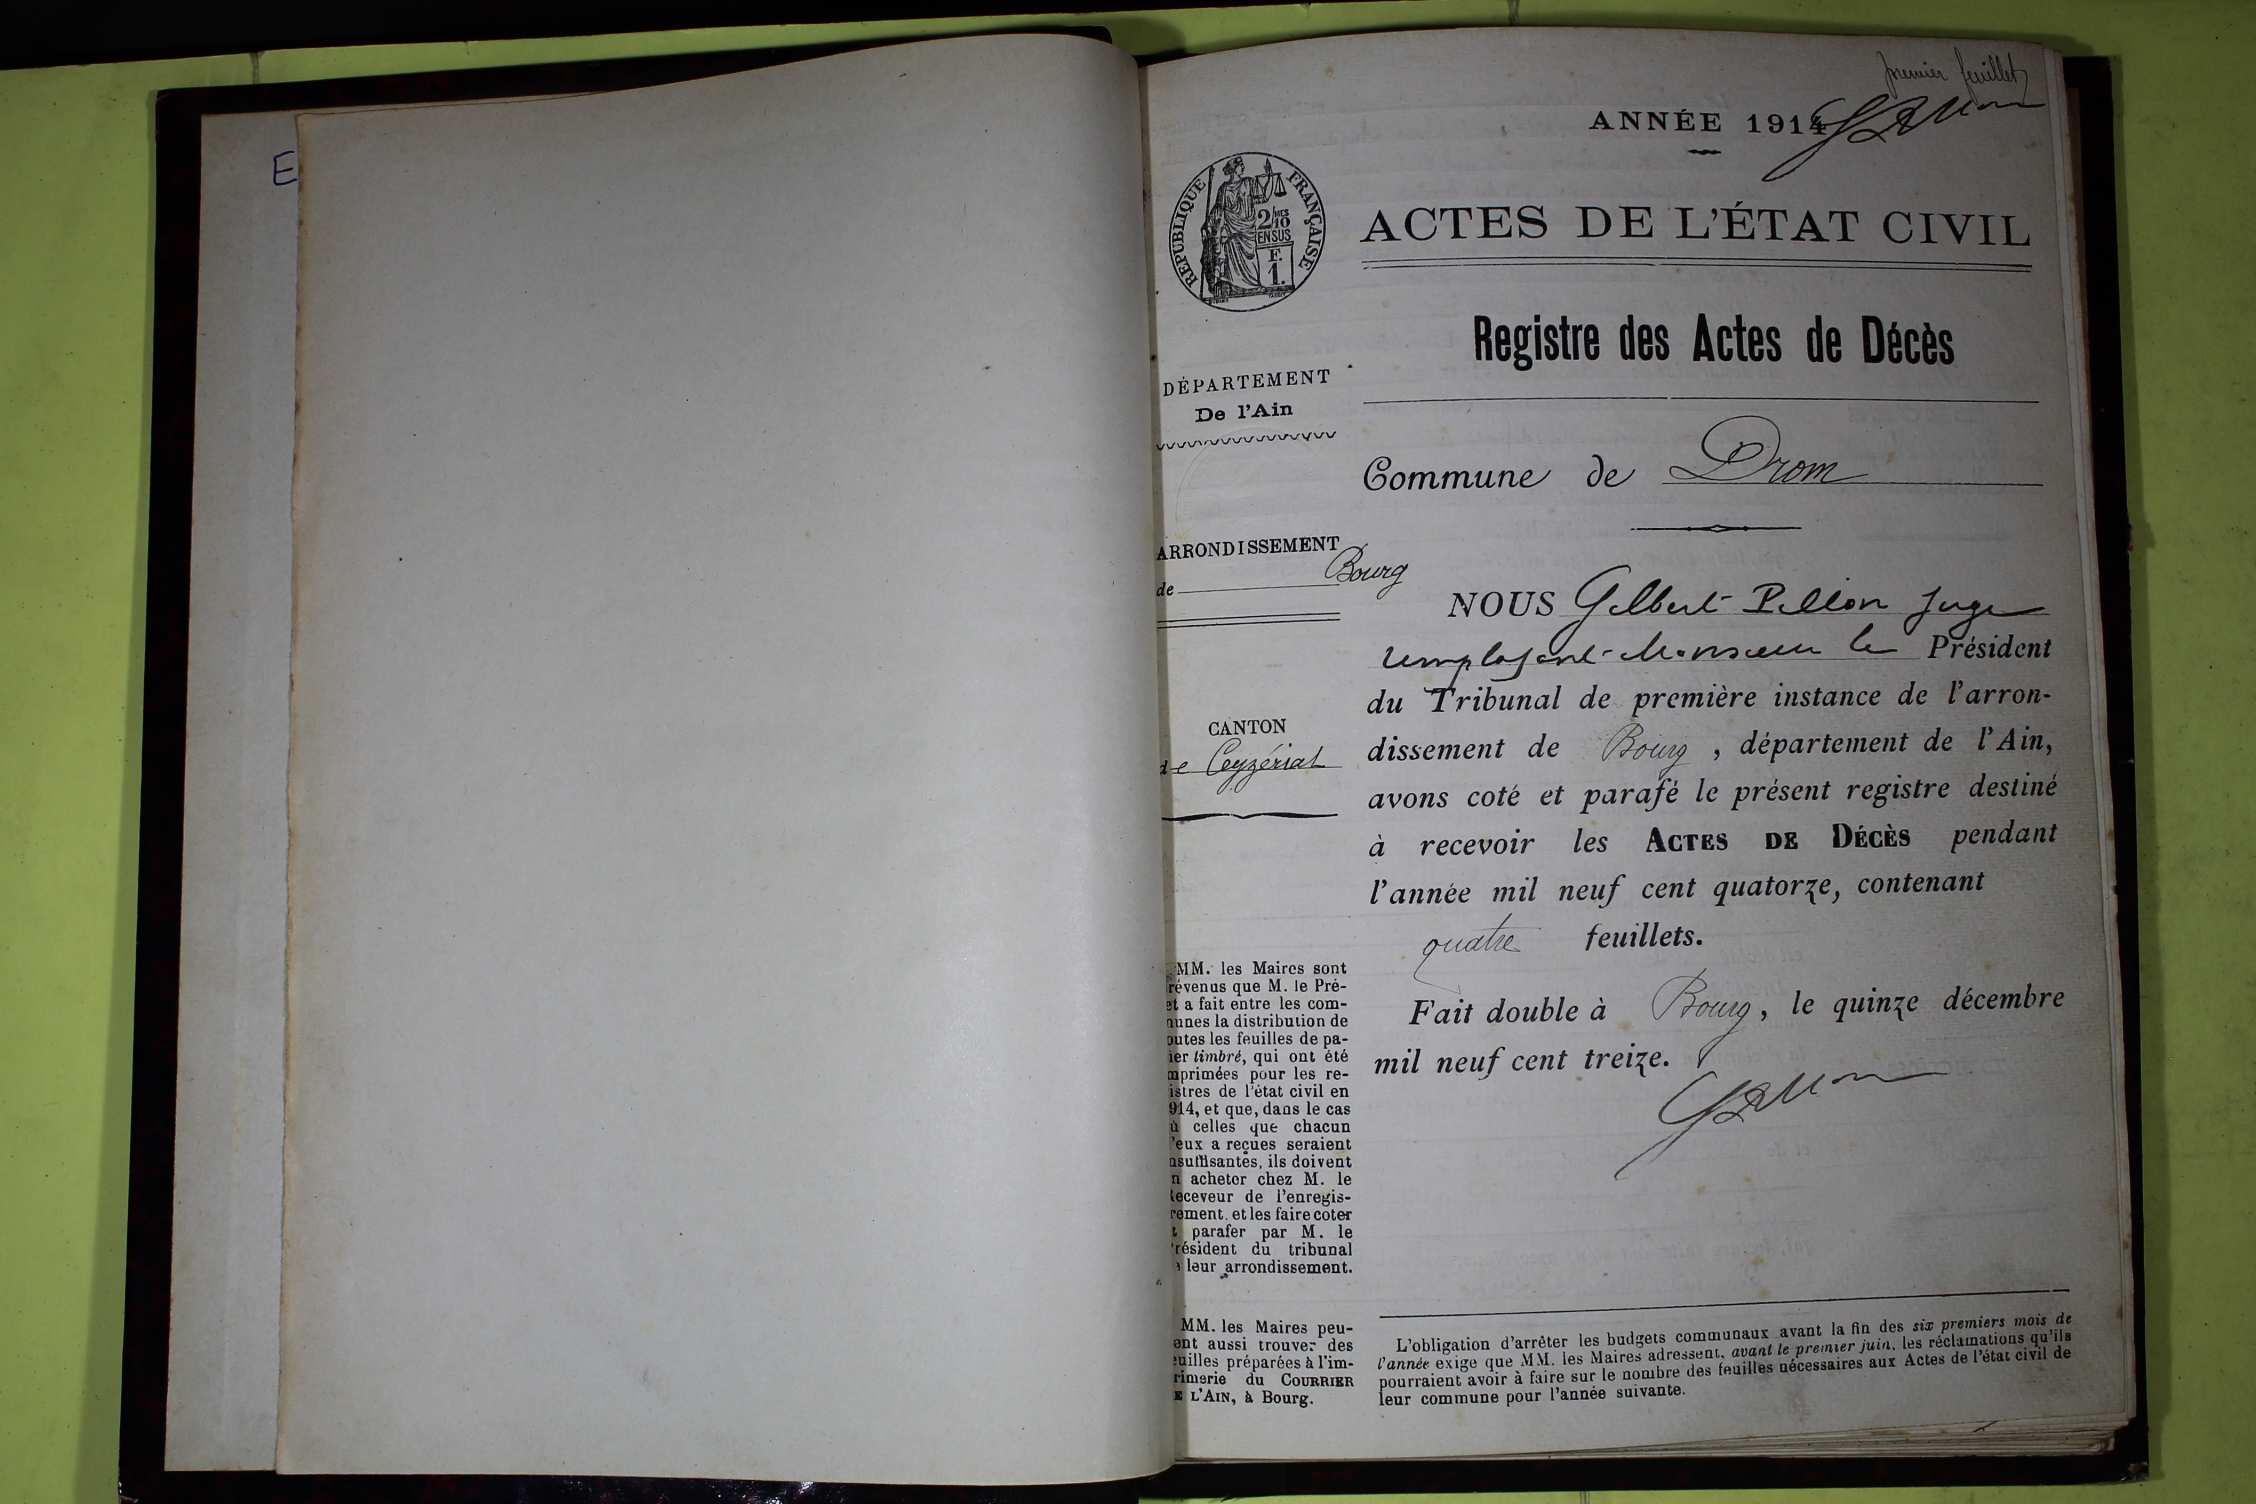 E
premier feuillet
ANNÉE 1914
RÉPUBLIQUE FRANÇAISE
2/10 MES
EN SUS
F.
1.
ACTES DE L'ÉTAT CIVIL
Registre des Actes de Décès
DÉPARTEMENT
De l'Ain
Commune de Drom
ARRONDISSEMENT
de Bourg
CANTON
de Ceyzériat
NOUS Gilbert Pellion Juge
remplaçant Monsieur le Président
du Tribunal de première instance de l'arron-
dissement de Bourg, département de l'Ain,
avons coté et parafé le présent registre destiné
à recevoir les ACTES DE DÉCÈS pendant
l'année mil neuf cent quatorze, contenant
quatre feuillets.
Fait double à Bourg, le quinze décembre
mil neuf cent treize.
MM. les Maires sont
révenus que M. le Pré-
et a fait entre les com-
munes la distribution de
outes les feuilles de pa-
ier timbré, qui ont été
mprimées pour les re-
istres de l'état civil en
914, et que, dans le cas
ù celles que chacun
'eux a reçues seraient
nsuffisantes, ils doivent
n acheter chez M. le
Receveur de l'enregis-
rement, et les faire coter
t parafer par M. le
résident du tribunal
leur arrondissement.
MM. les Maires peu-
ent aussi trouver des
euilles préparées à l'im-
rimerie du COURRIER
E L'AIN, à Bourg.
L'obligation d'arrêter les budgets communaux avant la fin des six premiers mois de
l'année exige que MM. les Maires adressent, avant le premier juin, les réclamations qu'ils
pourraient avoir à faire sur le nombre des feuilles nécessaires aux Actes de l'état civil de
leur commune pour l'année suivante.